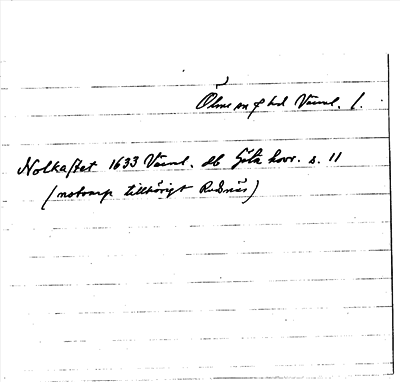 Ölme sn o hd Värml. l.
Nolkastet 1633 Värml. db Göta hovr. s. 11
(notvarp tillhörigt Rudsnäs)